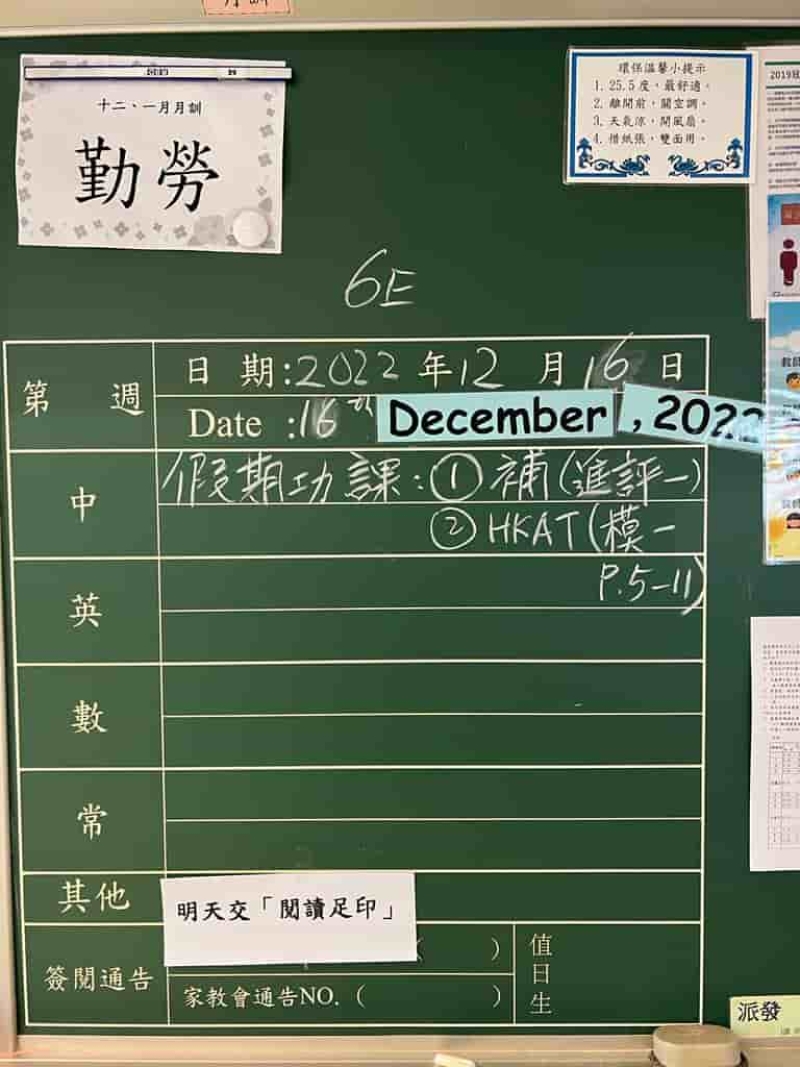 十二、一月月訓
勤勞
環保溫馨小提示
1. 25.5度，最舒適。
2. 離開前，關空調。
3. 天氣涼，開風扇。
4. 惜紙張，雙面用。
2019冠
6E
第 週
日 期:2022 年12 月16日
Date :16th December , 2022
中
假期功課:① 補(進評一)
② HKAT(模一
P.5-11)
英
數
常
其他
明天交「閱讀足印」
簽閱通告
( )
家教會通告NO. ( )
值日生
派發